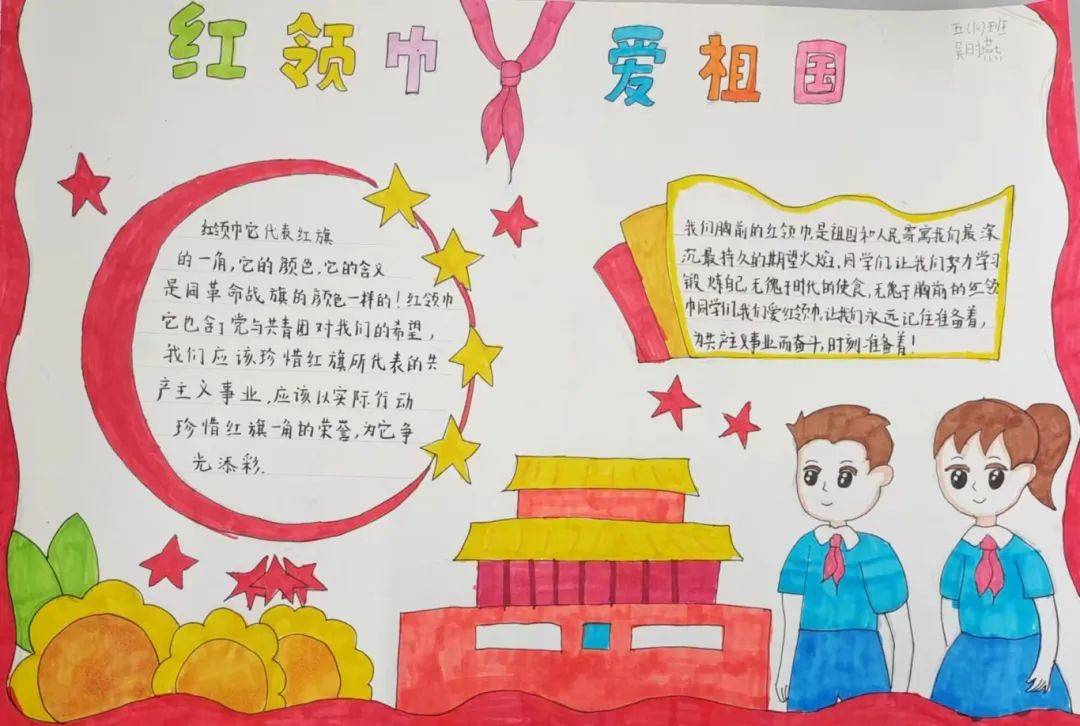 红领巾 爱祖国
五(10)班
红领巾它代表红旗
的一角,它的颜色,它的含义
是同革命战旗的颜色一样的!红领巾
它也含了党与共青团对我们的希望,
我们应该珍惜红旗所代表的共
产主义事业,应该以实际行动
珍惜红旗一角的荣誉,为它争
光添彩.
我们胸前的红领巾是祖国和人民寄寓我们最深
沉最持久的期望火焰,同学们,让我们努力学习
锻炼自己,无愧于时代的使食,无愧于胸前的红领
巾同学们,我们爱红领巾,让我们永远记住准备着,
为共产主义事业而奋斗,时刻准备着!